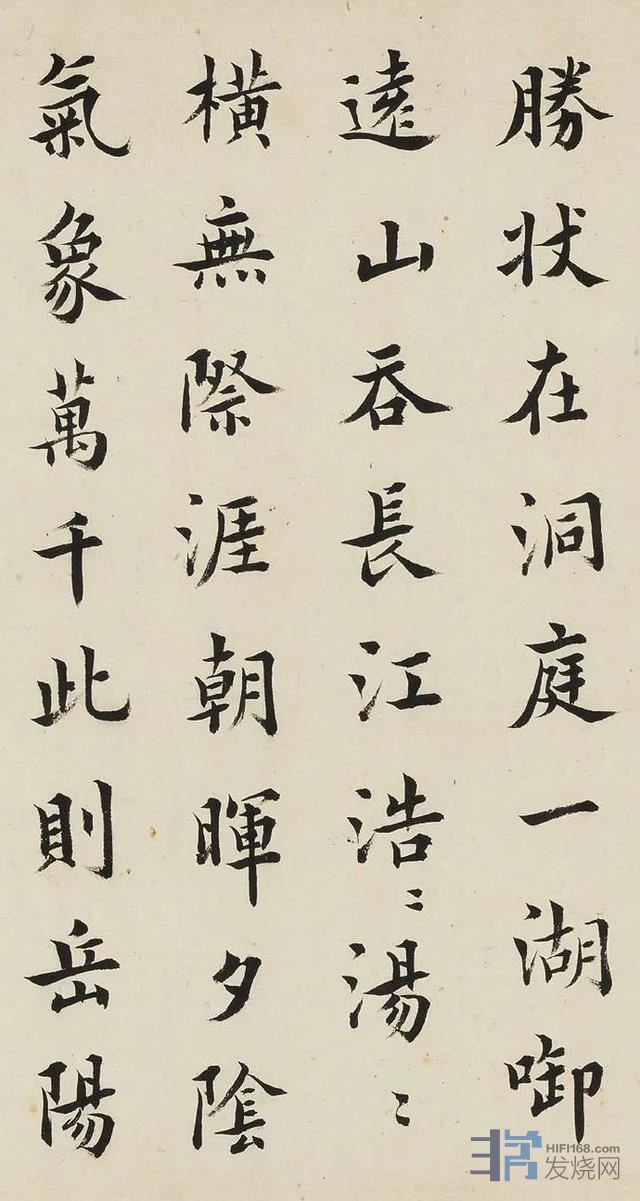 勝状在洞庭一湖啣
遠山吞長江浩〻湯〻
橫無際涯朝暉夕陰
氣象萬千此則岳陽
HIFI168.com
发烧网